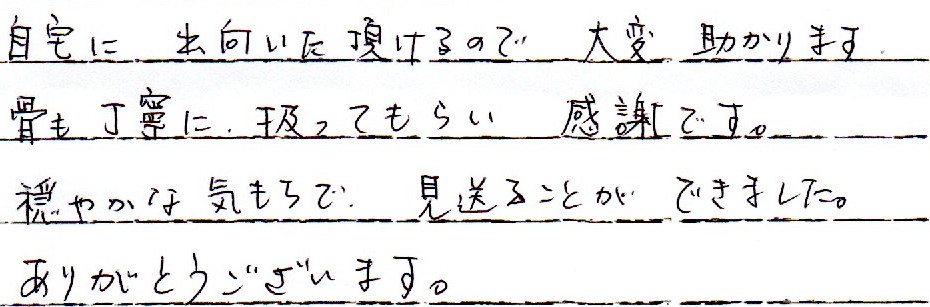 自宅に 出向いた頂けるので 大変 助かります
骨も 丁寧に、扱ってもらい 感謝です。
穏やかな 気もちで 見送ることが できました。
ありがとうございます。